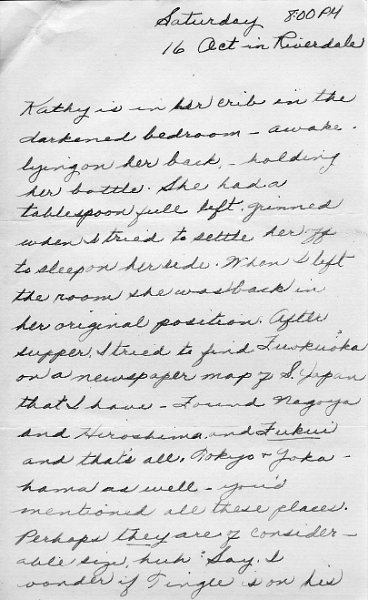 Saturday 8:00 PM
16 Oct in Riverdale
Kathy is in her crib in the
darkened bedroom - awake -
lying on her back, - holding
her bottle. She had a
tablespoon full left, grinned
when I tried to settle her off
to sleep on her side. When I left
the room she was back in
her original position. After
supper, I tried to find Fuokuoka
on a newspaper map of S. Japan
that I have - Found Nagoya
and Hiroshima and Fukui
and that's all. Tokyo + Yoka -
hama as well - you'd
mentioned all these places.
Perhaps they are of consider -
able size, huh? Say, I
wonder if Tingle is on his